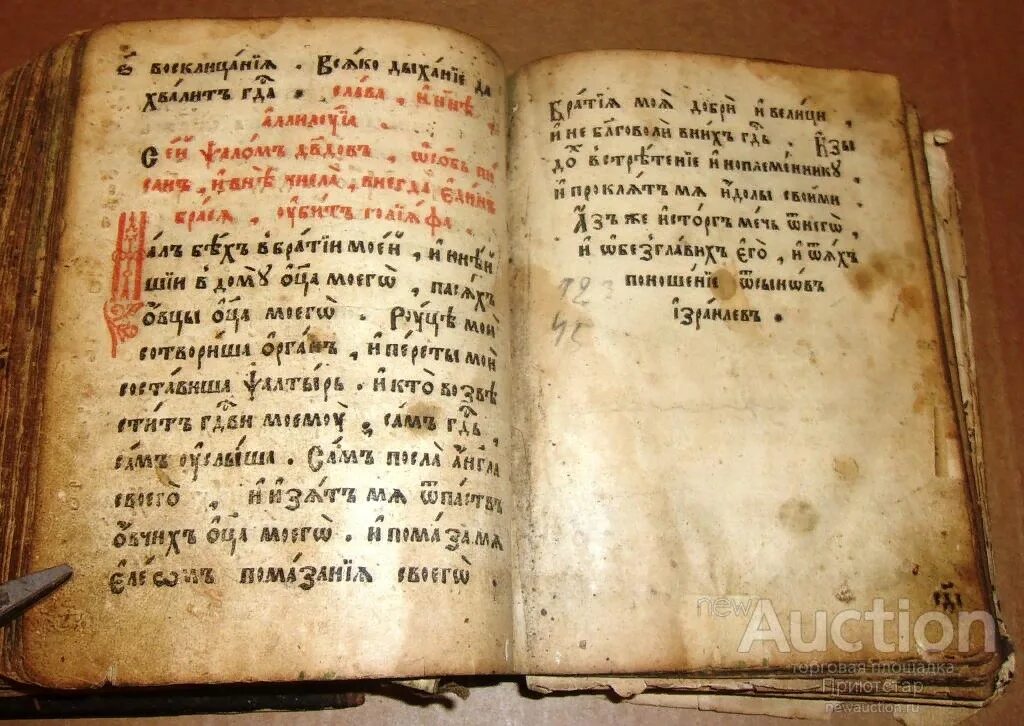 восклица́нїѧ . Всѧ́ко дыха́нїе да
хва́литъ гдⷭ҇а . сла́ва , и҆ ны́нѣ ,
а҆ллилꙋ́їа .
Се́й ѱало́мъ дв҃довъ , ѡ҆со́бь пи
са́нъ , и҆ внѣ̀ числа̀ , внегда̀ є҆ди́нъ
бра́сѧ , ᲂу҆би́тъ голїа́ѳа .
Ма́лъ бѣ́хъ в бра́тїи мое́й , и҆ ю҆нѣ́й
шїи в домꙋ̀ ѻ҆ц҃а моегѡ̀ , пасѧ́хъ
ѻ҆́вцы ѻ҆ц҃а моегѡ̀ . Рꙋ́цѣ моѝ
сотвори́ша ѻ҆рга́нъ , и҆ пе́рсты моѝ
соста́виша ѱалты́рь . и҆ кто̀ возвѣ
сти́тъ гдⷭ҇ви моемꙋ̀ , са́мъ гдⷭ҇ь ,
са́мъ ᲂу҆слы́ша . Са́мъ посла̀ а҆́нг҃ла
своего̀ , и҆ и҆зѧ́тъ мѧ ѿ па́ствъ
ѻ҆́вчихъ ѻ҆ц҃а моегѡ̀ . и҆ пома́за мѧ
є҆ле́омъ пома́занїѧ своегѡ̀ .
Бра́тїѧ моѧ̀ добрѝ и҆ вели́цы ,
и҆ не бл҃говолѝ в ни́хъ гдⷭ҇ь . И҆зы
до́ⷯ в срѣ́тенїе и҆ноплеме́нникꙋ ,
и҆ проклѧ́тъ мѧ и҆́дѡлы свои́ми .
А҆́зъ же и҆сто́ргъ ме́чь ѿ негѡ̀ ,
и҆ ѡ҆безгла́вихъ є҆го̀ , и҆ ѿѧ́хъ
поноше́нїе ѿ сынѡ́въ
і҆зра́илевъ .
newAuction
торговая площадка
Приютстар
newauction.ru